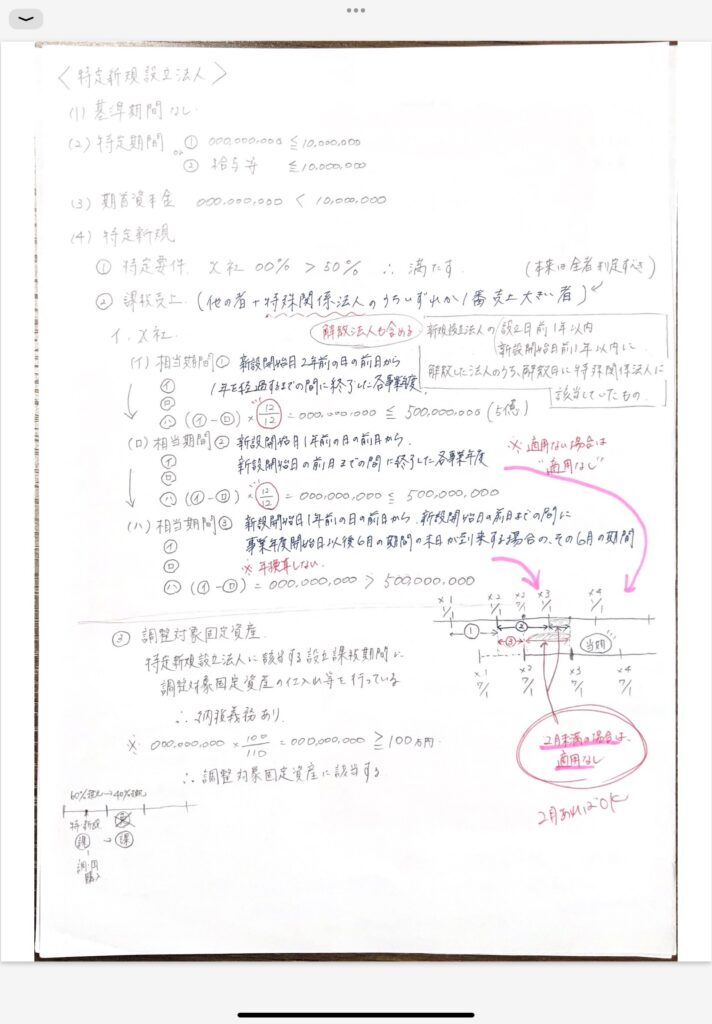 〈特定新規設立法人〉
(1) 基準期間なし.
(2) 特定期間 ① 000,000,000 ≦ 10,000,000
or
② 給与等 ≦ 10,000,000
(3) 期首資本金 000,000,000 < 10,000,000
(4) 特定新規
① 特定要件. X社 00% > 50% ∴ 満たす. (本来は全者判定すべき)
② 課税売上 (他の者+特殊関係法人のうちいずれか1番売上大きい者)
解散法人も含める
新規設立法人の設立日前1年以内
新設開始日前1年以内に
解散した法人のうち、解散日に特殊関係法人に
該当していたもの.
イ. X社
(イ) 相当期間① 新設開始日2年前の日の前日から
1年を経過するまでの間に終了した各事業年度
イ
ロ
ハ (イ-ロ) × 12/12 = 000,000,000 ≦ 500,000,000 (5億)
(ロ) 相当期間② 新設開始日1年前の日の前日から.
新設開始日の前日までの間に終了した各事業年度
※ 適用ない場合は
"適用なし"
イ
ロ
ハ (イ-ロ) × 12/12 = 000,000,000 ≦ 500,000,000
(ハ) 相当期間③ 新設開始日1年前の日の前日から. 新設開始日の前日までの間に
事業年度開始日以後6月の期間の末日が到来する場合の、その6月の期間
イ
ロ ※ 年換算しない.
ハ (イ-ロ) = 000,000,000 > 500,000,000
×1 ×2 ×2 ×3 ×4
1/1 1/1 7/1 1/1 1/1
① ②
③ 当期
×1 ×2 ×3 ×4
7/1 7/1 7/1 7/1
2月未満の場合は、
適用なし
2月あればOK
③ 調整対象固定資産
特定新規設立法人に該当する設立課税期間に
調整対象固定資産の仕入れ等を行っている
∴ 納税義務あり.
※ 000,000,000 × 100/110 = 000,000,000 ≧ 100万円.
∴ 調整対象固定資産に該当する
特・新設
課 → 課
調・固
購入